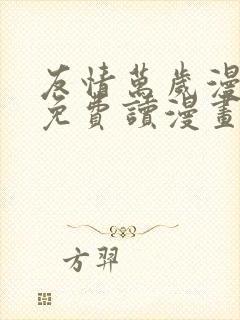 友情萬歲漫
免費讀漫畫
方羿